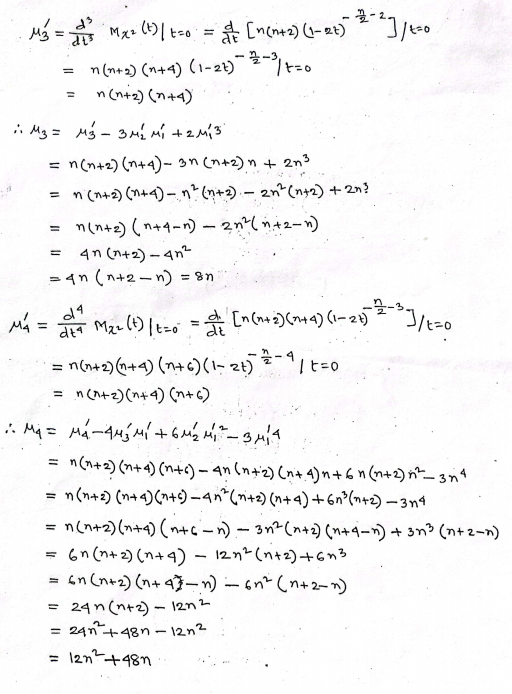 μ₃′ = d³/dt³ Mχ²(t)|t=0 = d/dt [n(n+2)(1-2t)^(-n/2-2)]/t=0
= n(n+2)(n+4)(1-2t)^(-n/2-3)/t=0
= n(n+2)(n+4)
∴ μ₃ = μ₃′ - 3μ₂′μ₁′ + 2μ₁′³
= n(n+2)(n+4) - 3n(n+2)n + 2n³
= n(n+2)(n+4) - n²(n+2) - 2n²(n+2) + 2n³
= n(n+2)(n+4-n) - 2n²(n+2-n)
= 4n(n+2) - 4n²
= 4n(n+2-n) = 8n
μ₄′ = d⁴/dt⁴ Mχ²(t)|t=0 = d/dt [n(n+2)(n+4)(1-2t)^(-n/2-3)]/t=0
= n(n+2)(n+4)(n+6)(1-2t)^(-n/2-4)|t=0
= n(n+2)(n+4)(n+6)
∴ μ₄ = μ₄′ - 4μ₃′μ₁′ + 6μ₂′μ₁′² - 3μ₁′⁴
= n(n+2)(n+4)(n+6) - 4n(n+2)(n+4)n + 6n(n+2)n² - 3n⁴
= n(n+2)(n+4)(n+6) - 4n²(n+2)(n+4) + 6n³(n+2) - 3n⁴
= n(n+2)(n+4)(n+6-n) - 3n²(n+2)(n+4-n) + 3n³(n+2-n)
= 6n(n+2)(n+4) - 12n²(n+2) + 6n³
= 6n(n+2)(n+4-n) - 6n²(n+2-n)
= 24n(n+2) - 12n²
= 24n² + 48n - 12n²
= 12n² + 48n